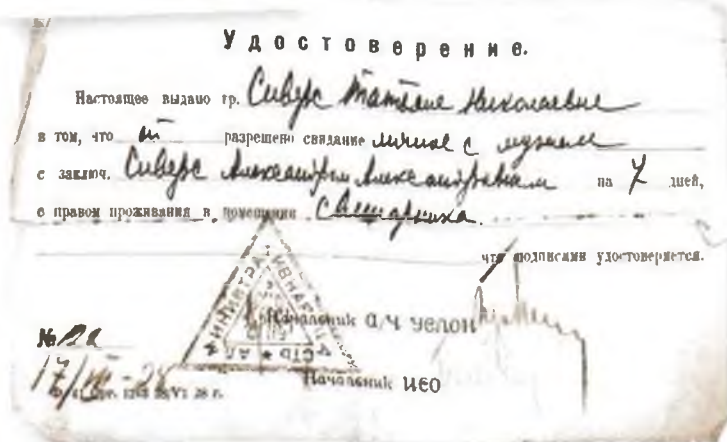 Удостоверение.
Настоящее выдано гр. Сиверс Татьяне Николаевне
в том, что ей разрешено свидание личное с мужем
с заключ. Сиверс Александром Александровичем на 7 дней,
с правом проживания в помещении
что подписями удостоверяется.
АДМИНИСТРАТИВНАЯ Ч
Начальник а/ч УСЛОН
№ 22
17/VII-28
Начальник ИСО